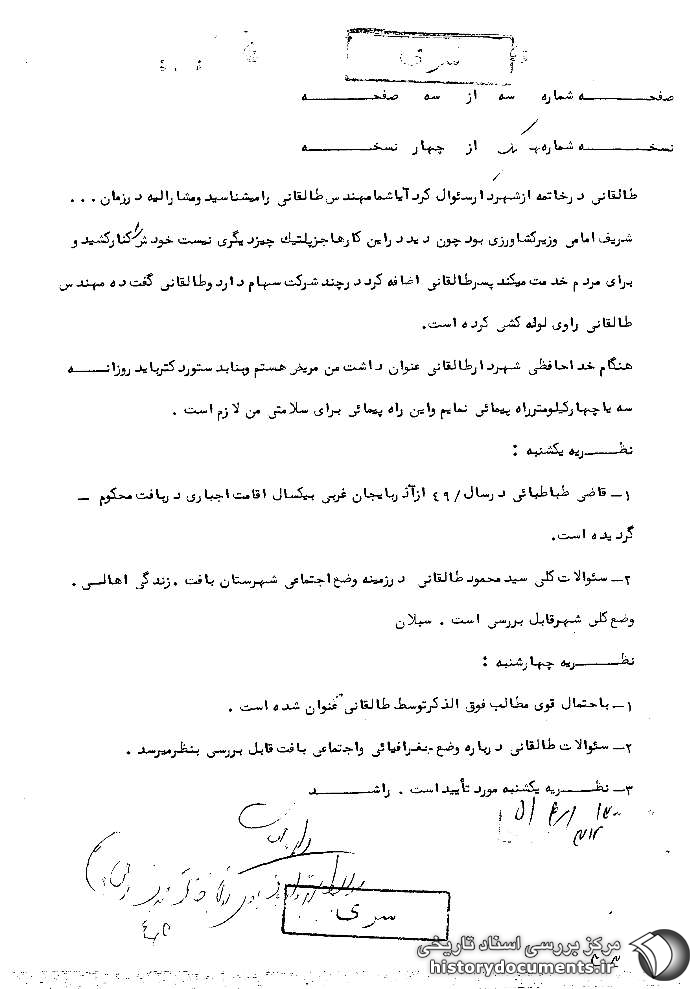 سری
صفحه شماره سه از سه صفحه
نسخه شماره یک از چهار نسخه
طالقانی در خاتمه از شهردار سئوال کرد آیا شما مهندس طالقانی را میشناسید ومشارالیه در زمان ...
شریف امامی وزیر کشاورزی بود چون دید در این کارها جز پلتیک چیز دیگری نیست خودش را کنار کشید و
برای مردم خدمت میکند پسر طالقانی اضافه کرد در چند شرکت سهام دارد وطالقانی گفت ده مهندس
طالقانی را وی لوله کشی کرده است.
هنگام خداحافظی شهردار طالقانی عنوان داشت من مریض هستم وبنا بدستور دکتر باید روزانه
سه یا چهار کیلومتر راه پیمائی نمایم واین راه پیمائی برای سلامتی من لازم است .
نظریه یکشنبه :
۱ـ قاضی طباطبائی در سال ۴۹/ از آذربایجان غربی بیکسال اقامت اجباری در بافت محکوم ـ
گردیده است.
۲ـ سئوالات کلی سید محمود طالقانی در زمینه وضع اجتماعی شهرستان بافت . زندگی اهالی .
وضع کلی شهر قابل بررسی است . سبلان
نظریه چهارشنبه :
۱ـ باحتمال قوی مطالب فوق الذکر توسط طالقانی عنوان شده است .
۲ـ سئوالات طالقانی در باره وضع جغرافیائی واجتماعی بافت قابل بررسی بنظر میرسد .
۳ـ نظریه یکشنبه مورد تأیید است . راشد
سری
مرکز بررسی اسناد تاریخی
historydocuments.ir